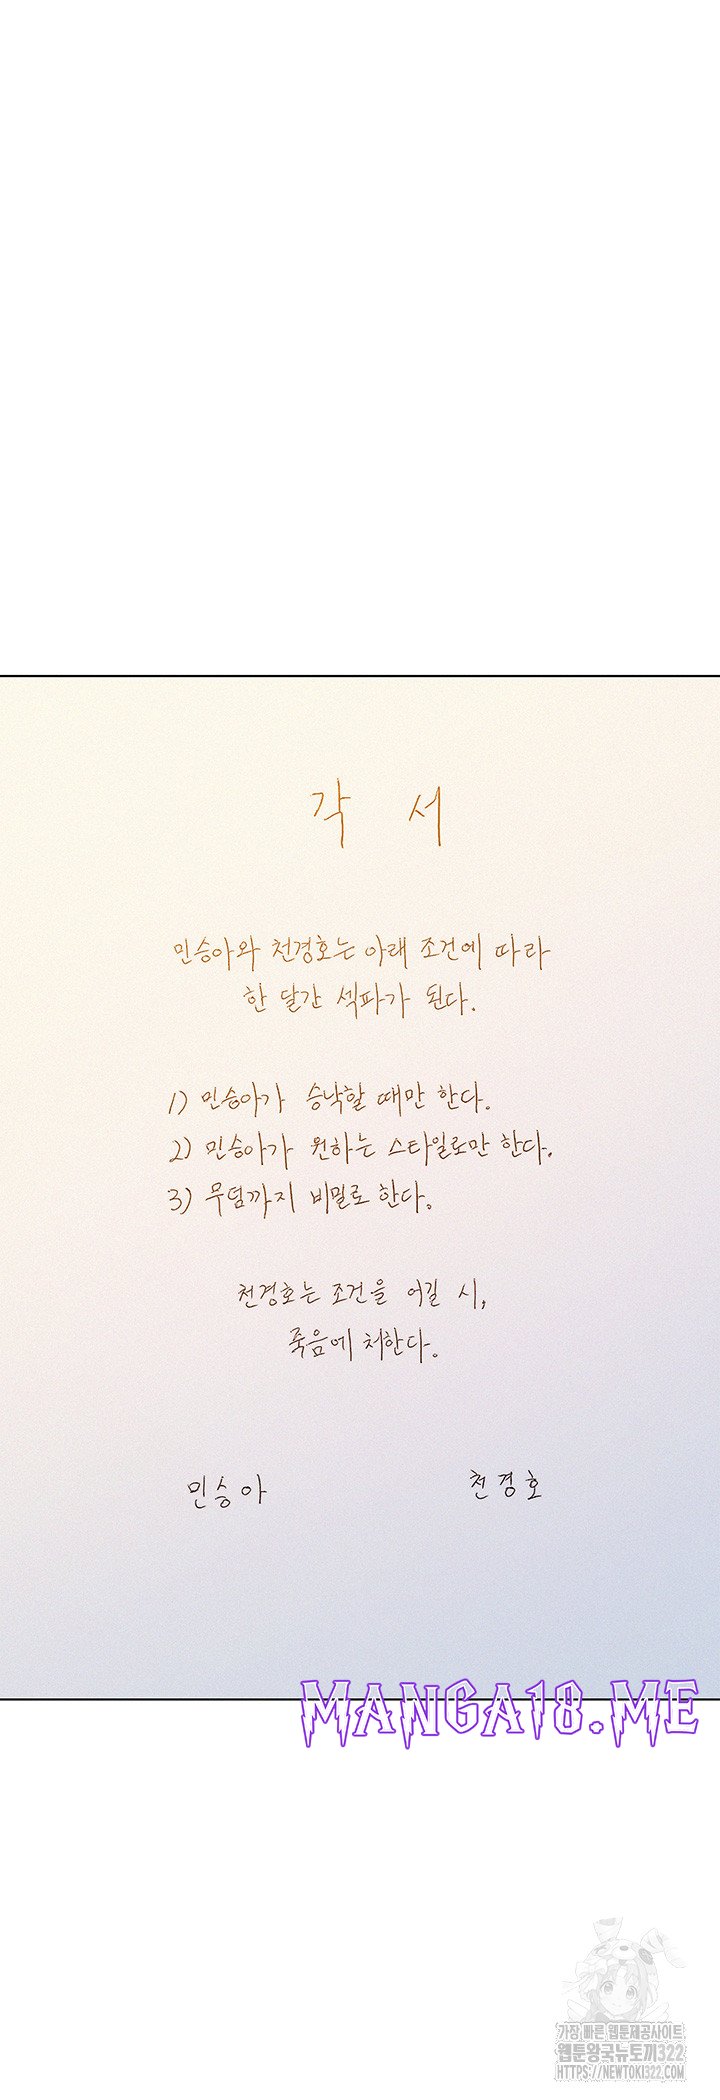 각 서
민승아와 천경호는 아래 조건에 따라
한 달간 섹파가 된다.
1) 민승아가 승낙할 때만 한다.
2) 민승아가 원하는 스타일로만 한다.
3) 무덤까지 비밀로 한다.
천경호는 조건을 어길 시,
죽음에 처한다.
민승아 천경호
MANGA18.ME
가장 빠른 웹툰제공사이트
웹툰왕국뉴토끼322
HTTPS://NEWTOKI322.COM